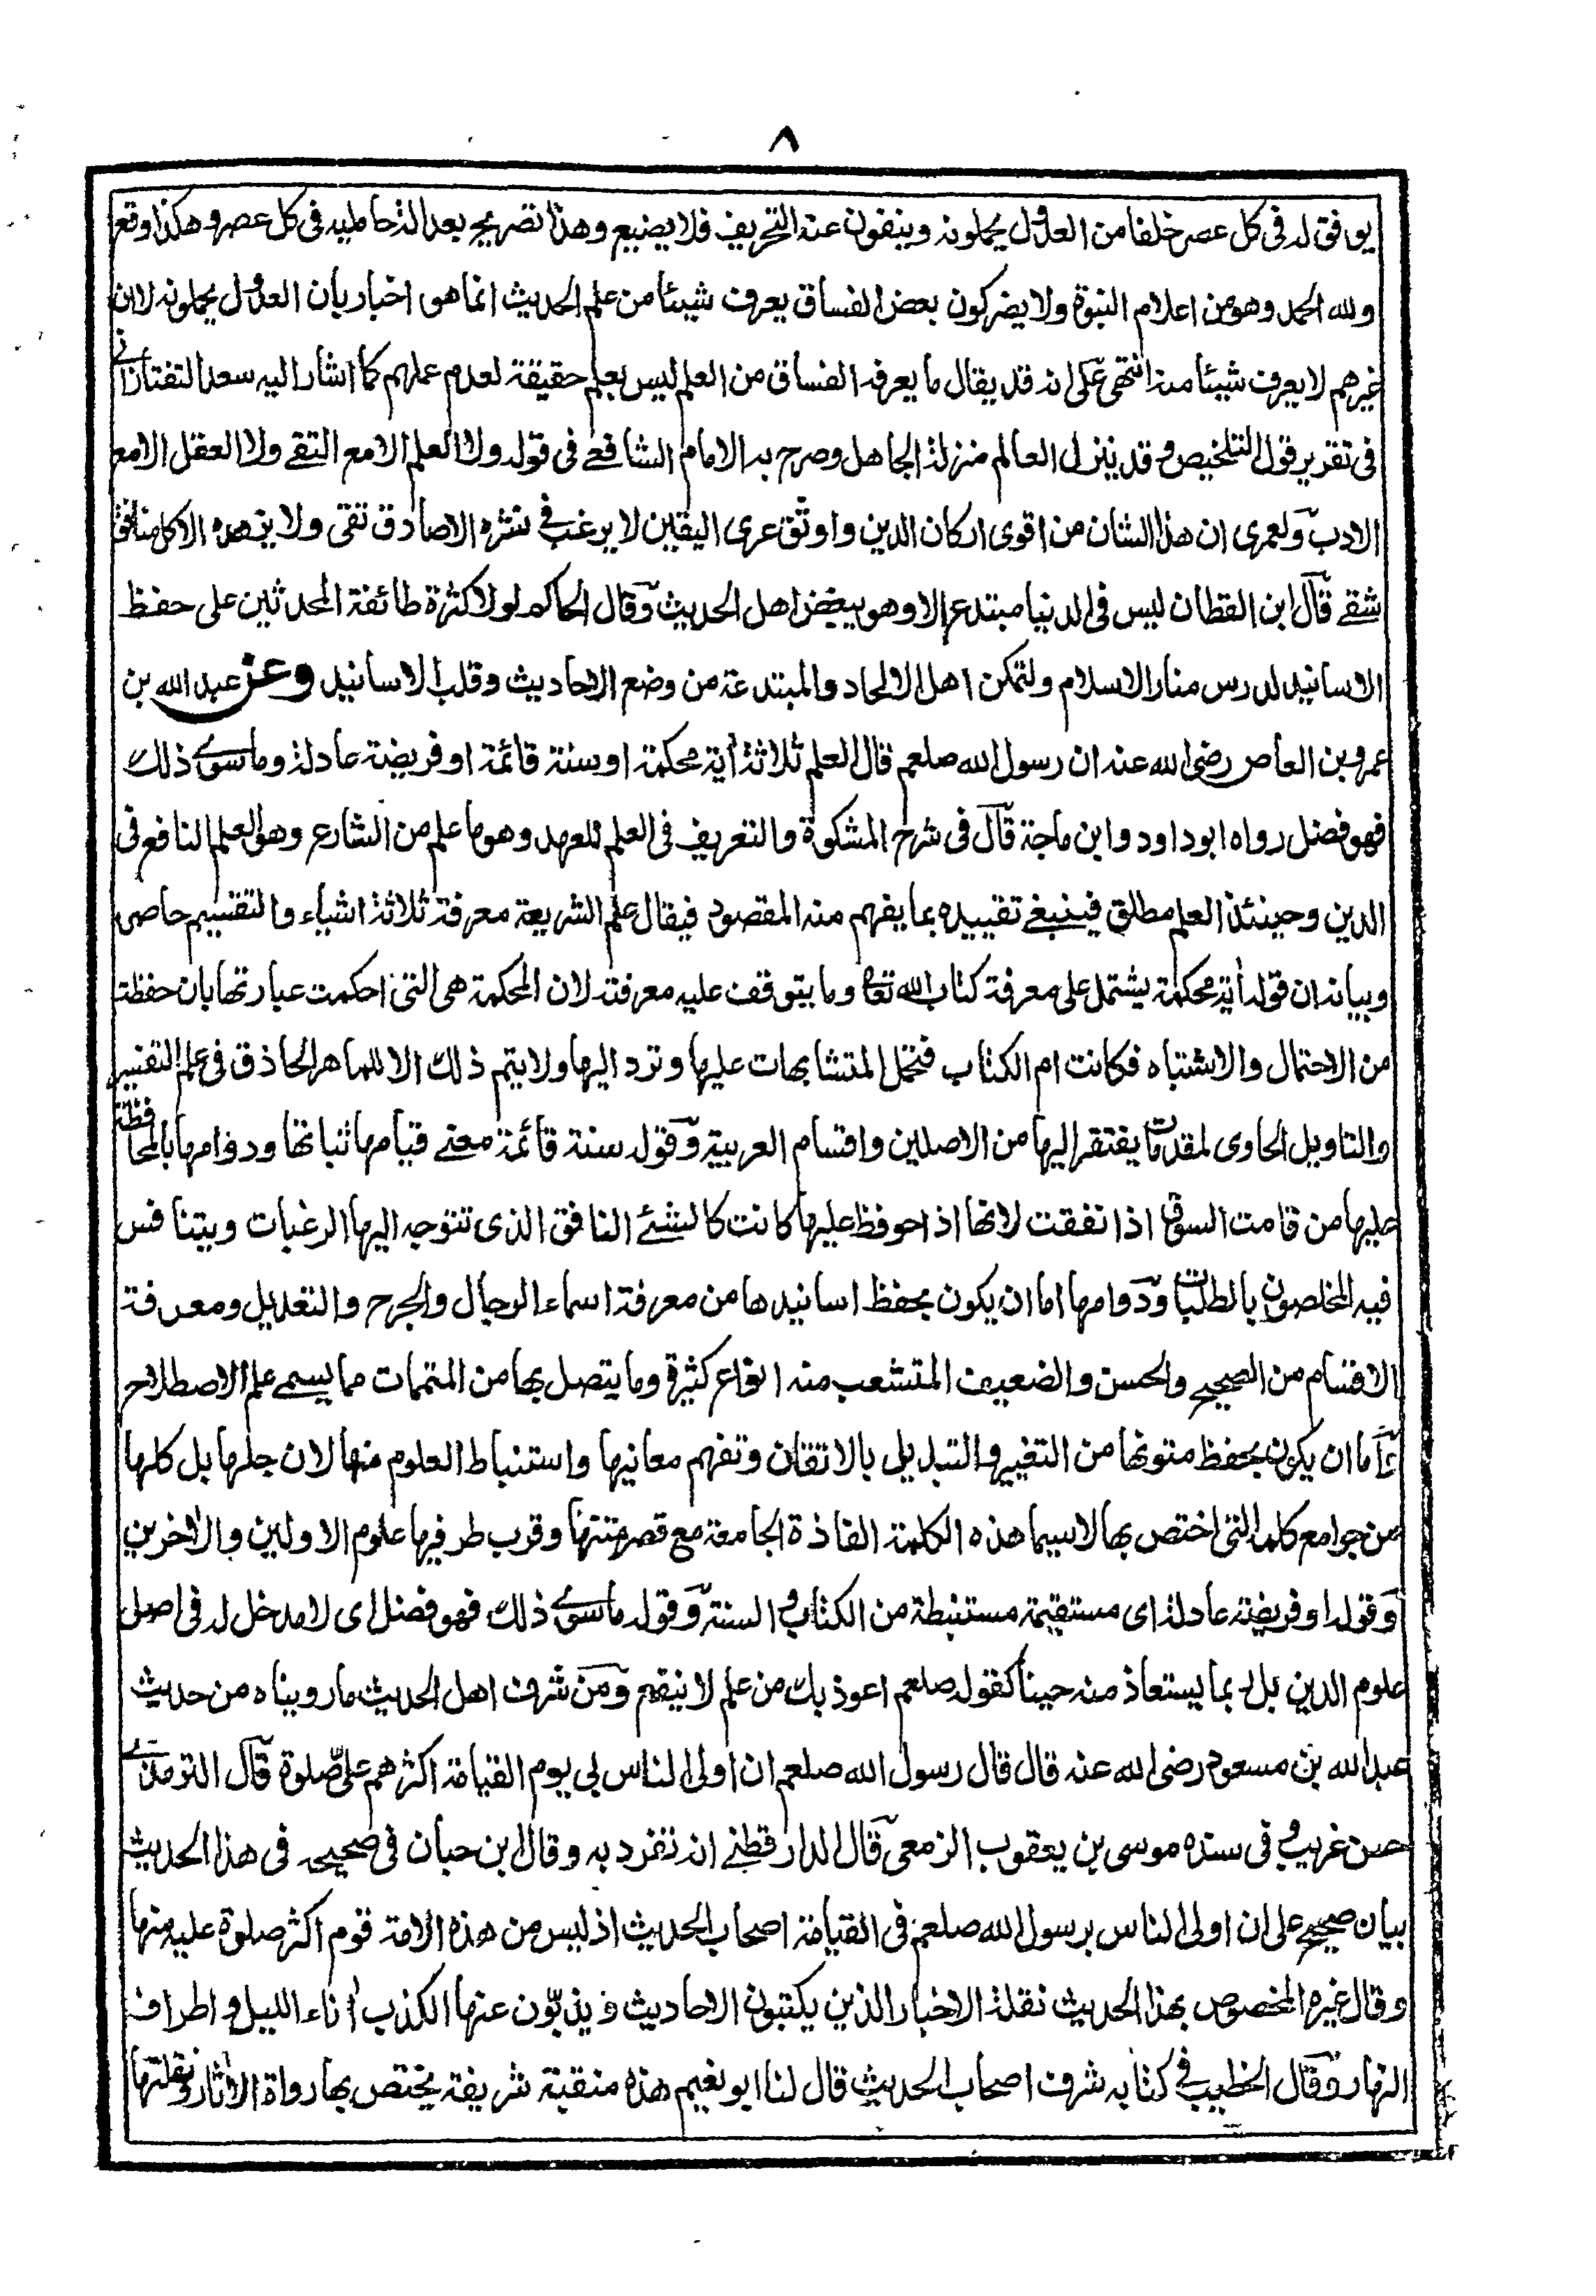 ٨
يوفق له فى كل عصر خلفا من العدول يحملونه وينفون عنه التحريف فلا يضيع وهذا تصريح بعدالة حامليه فى كل عصر وهكذا وقع
ولله الحمد وهو من اعلام النبوة ولا يضر كون بعض الفساق يعرف شيئا من علم الحديث انما هو اخبار بان العدول يحملونه لا ان
غيرهم لا يعرف شيئا منه انتهى على انه قد يقال ما يعرفه الفساق من العلم ليس بعلم حقيقة لعدم عملهم كما اشار اليه سعد التفتازانى
فى تقرير قول التلخيص وقد ينزل العالم منزلة الجاهل وصرح به الامام الشافعے فى قوله ولا العلم الا مع التقے ولا العقل الا مع
الادب ولعمرى ان هذا الشان من اقوى اركان الدين واوثق عرى اليقين لا يرغب فے نشره الا صادق تقى ولا يزهده الا كل منافق
شقے قال ابن القطان ليس فى الدنيا مبتدع الا وهو يبغض اهل الحديث وقال الحاكم لولا كثرة طائفة المحدثين على حفظ
الاسانيد لدرس منار الاسلام ولتمكن اهل الالحاد والمبتدعة من وضع الاحاديث وقلب الاسانيد وعن عبد الله بن
عمرو بن العاص رضى الله عنه ان رسول الله صلعم قال العلم ثلاثة أية محكمة او سنة قائمة او فريضة عادلة وما سوے ذلك
فهو فضل رواه ابو داود وابن ماجة قال فى شرح المشكوة والتعريف فى العلم للعهد وهو ما علم من الشارع وهو العلم النافع فى
الدين وحينئذ العلم مطلق فينبغے تقييده بما يفهم منه المقصود فيقال علم الشريعة معرفة ثلاثة اشياء والتقسيم حاصر
وبيانه ان قوله أية محكمة يشتمل على معرفة كتاب الله تعا وما يتوقف عليه معرفته لان المحكمة هى التى احكمت عبارتها بان حفظت
من الاحتمال والاشتباه فكانت ام الكتاب فتحمل المتشابهات عليها وترد اليها ولا يتم ذلك الا للماهر الحاذق فى علم التفسير
والتاويل الحاوى لمقدمات يفتقر اليها من الاصلين واقسام العربية وقوله سنة قائمة معنے قيامها ثباتها ودوامها بالمحافظة
عليها من قامت السوق اذا نفقت لانها اذا حوفظ عليها كانت كالشئے النافق الذى تتوجه اليها الرغبات ويتنافس
فيه المخلصون بالطلبات ودوامها اما ان يكون بحفظ اسانيدها من معرفة اسماء الرجال والجرح والتعديل ومعرفة
الاقسام من الصحيح والحسن والضعيف المتشعب منه انواع كثيرة وما يتصل بها من المتممات مما يسمے علم الاصطلاح
واما ان يكون بحفظ متونها من التغيير والتبديل بالاتقان وتفهم معانيها واستنباط العلوم منها لان جلها بل كلها
من جوامع كلمه التى اختص بها لا سيما هذه الكلمة الفاذة الجامعة مع قصر متنها وقرب طرفيها علوم الاولين والأخرين
وقوله او فريضة عادلة اى مستقيمة مستنبطة من الكتاب والسنة وقوله ما سوے ذلك فهو فضل اى لا مدخل له فى اصل
علوم الدين بل ربما يستعاذ منه حينا كقوله صلعم اعوذ بك من علم لا ينفع ومن شرف اهل الحديث ما رويناه من حديث
عبد الله بن مسعود رضى الله عنه قال قال رسول الله صلعم ان اولى الناس بى يوم القيامة اكثرهم علىّ صلوة قال الترمذے
حسن غريب وفى سنده موسى بن يعقوب الزمعى قال الدارقطنے انه تفرد به وقال ابن حبان فى صحيحه فى هذا الحديث
بيان صحيح على ان اولى الناس برسول الله صلعم فى القيامة اصحاب الحديث اذ ليس من هذه الامة قوم اكثر صلوة عليه منها
وقال غيره المخصوص بهذا الحديث نقلة الاخبار الذين يكتبون الاحاديث ويذبّون عنها الكذب أناء الليل واطراف
النهار وقال الخطيب فے كتابه شرف اصحاب الحديث قال لنا ابو نعيم هذه منقبة شريفة يختص بها رواة الأثار ونقلتها